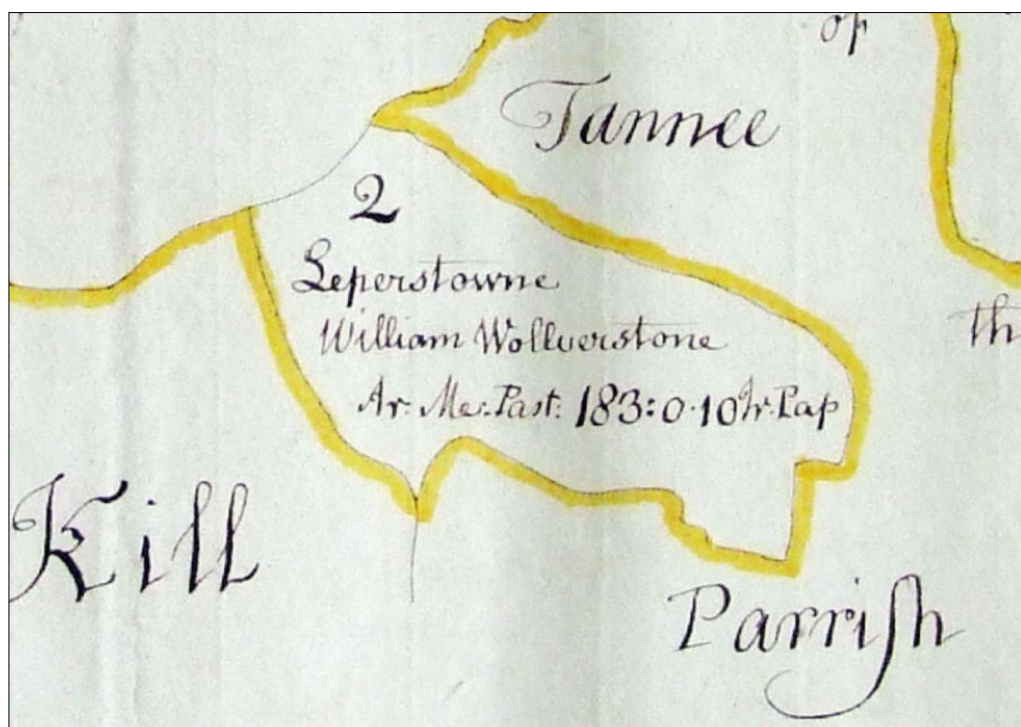 of
Tannee
2
Leperstowne
William Wollverstone
th
Ar: Me: Past: 183:0·10 Ir. Pap
Kill
Parrish